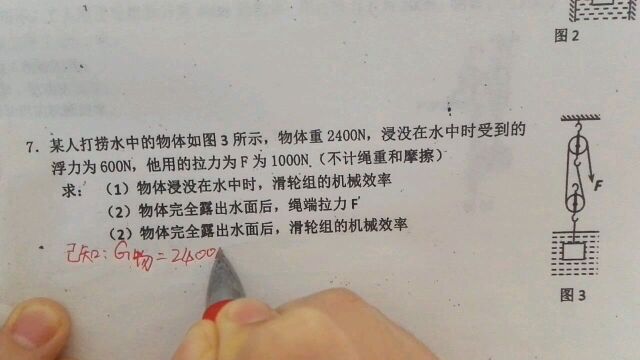 图2
7. 某人打捞水中的物体如图3所示，物体重2400N，浸没在水中时受到的
浮力为600N，他用的拉力为F为1000N.（不计绳重和摩擦）
求：（1）物体浸没在水中时，滑轮组的机械效率
（2）物体完全露出水面后，绳端拉力F'
（2）物体完全露出水面后，滑轮组的机械效率
已知：G物=2400
F
图3